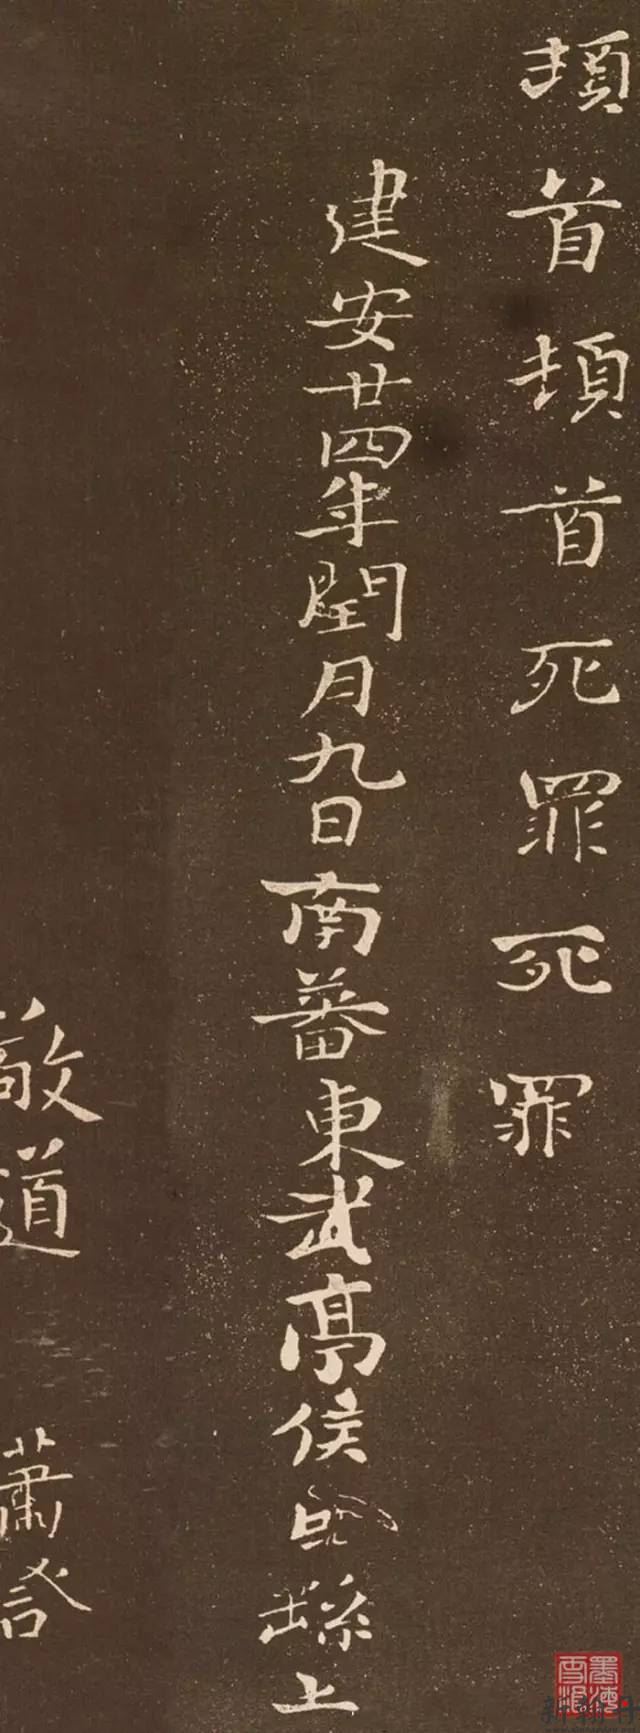 頓首頓首死罪死罪
建安廿四年閏月九日南蕃東武亭侯臣繇上
道 蕭